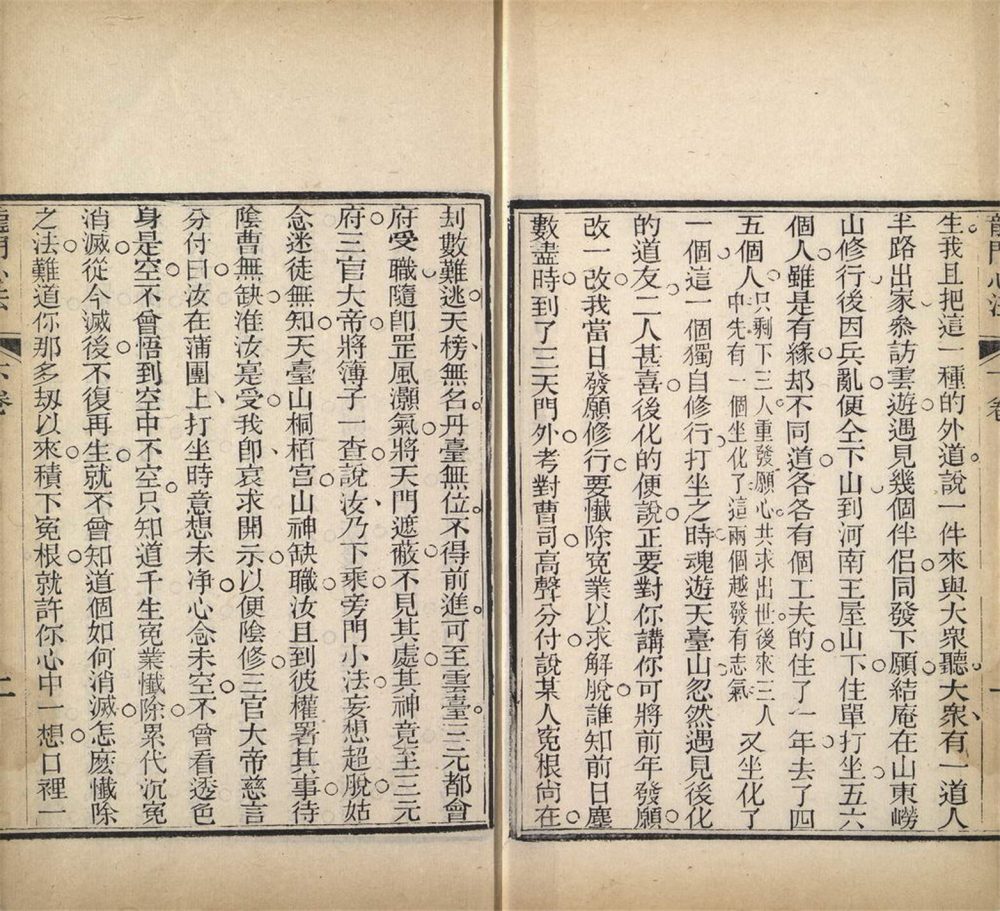 龍門心法
卷
生我且把這一種的外道說一件來與大衆聽大衆有一道人
半路出家叅訪雲遊遇見幾個伴侶同發下願結庵在山東嶗
山修行後因兵亂便仝下山到河南王屋山下住單打坐五六
個人雖是有緣却不同道各各有個工夫的住了一年去了四
五個人只剩下三人重發願心共求出世後來三人中先有一個坐化了這兩個越發有志氣又坐化了
一個這一個獨自修行打坐之時魂遊天臺山忽然遇見後化
的道友二人甚喜後化的便說正要對你講你可將前年發願
改一改我當日發願修行要懺除寃業以求解脫誰知前日塵
數盡時到了三天門外考對曹司高聲分付說某人寃根尙在
刦數難逃天榜無名丹臺無位不得前進可至雲臺三元都會
府受職隨卽罡風灝氣將天門遮蔽不見其處其神竟至三元
府三官大帝將簿子一查說汝乃下乘旁門小法妄想超脫姑
念迷徒無知天臺山桐栢宮山神缺職汝且到彼權署其事待
陰曹無缺准汝寔受我卽哀求開示以便陰修三官大帝慈言
分付曰汝在蒲團上打坐時意想未净心念未空不曾看透色
身是空不曾悟到空中不空只知道千生寃業懺除累代沉寃
消滅從今滅後不復再生就不曾知道個如何消滅怎麽懺除
之法難道你那多刼以來積下寃根就許你心中一想口裡一
龍門心法
卷
二